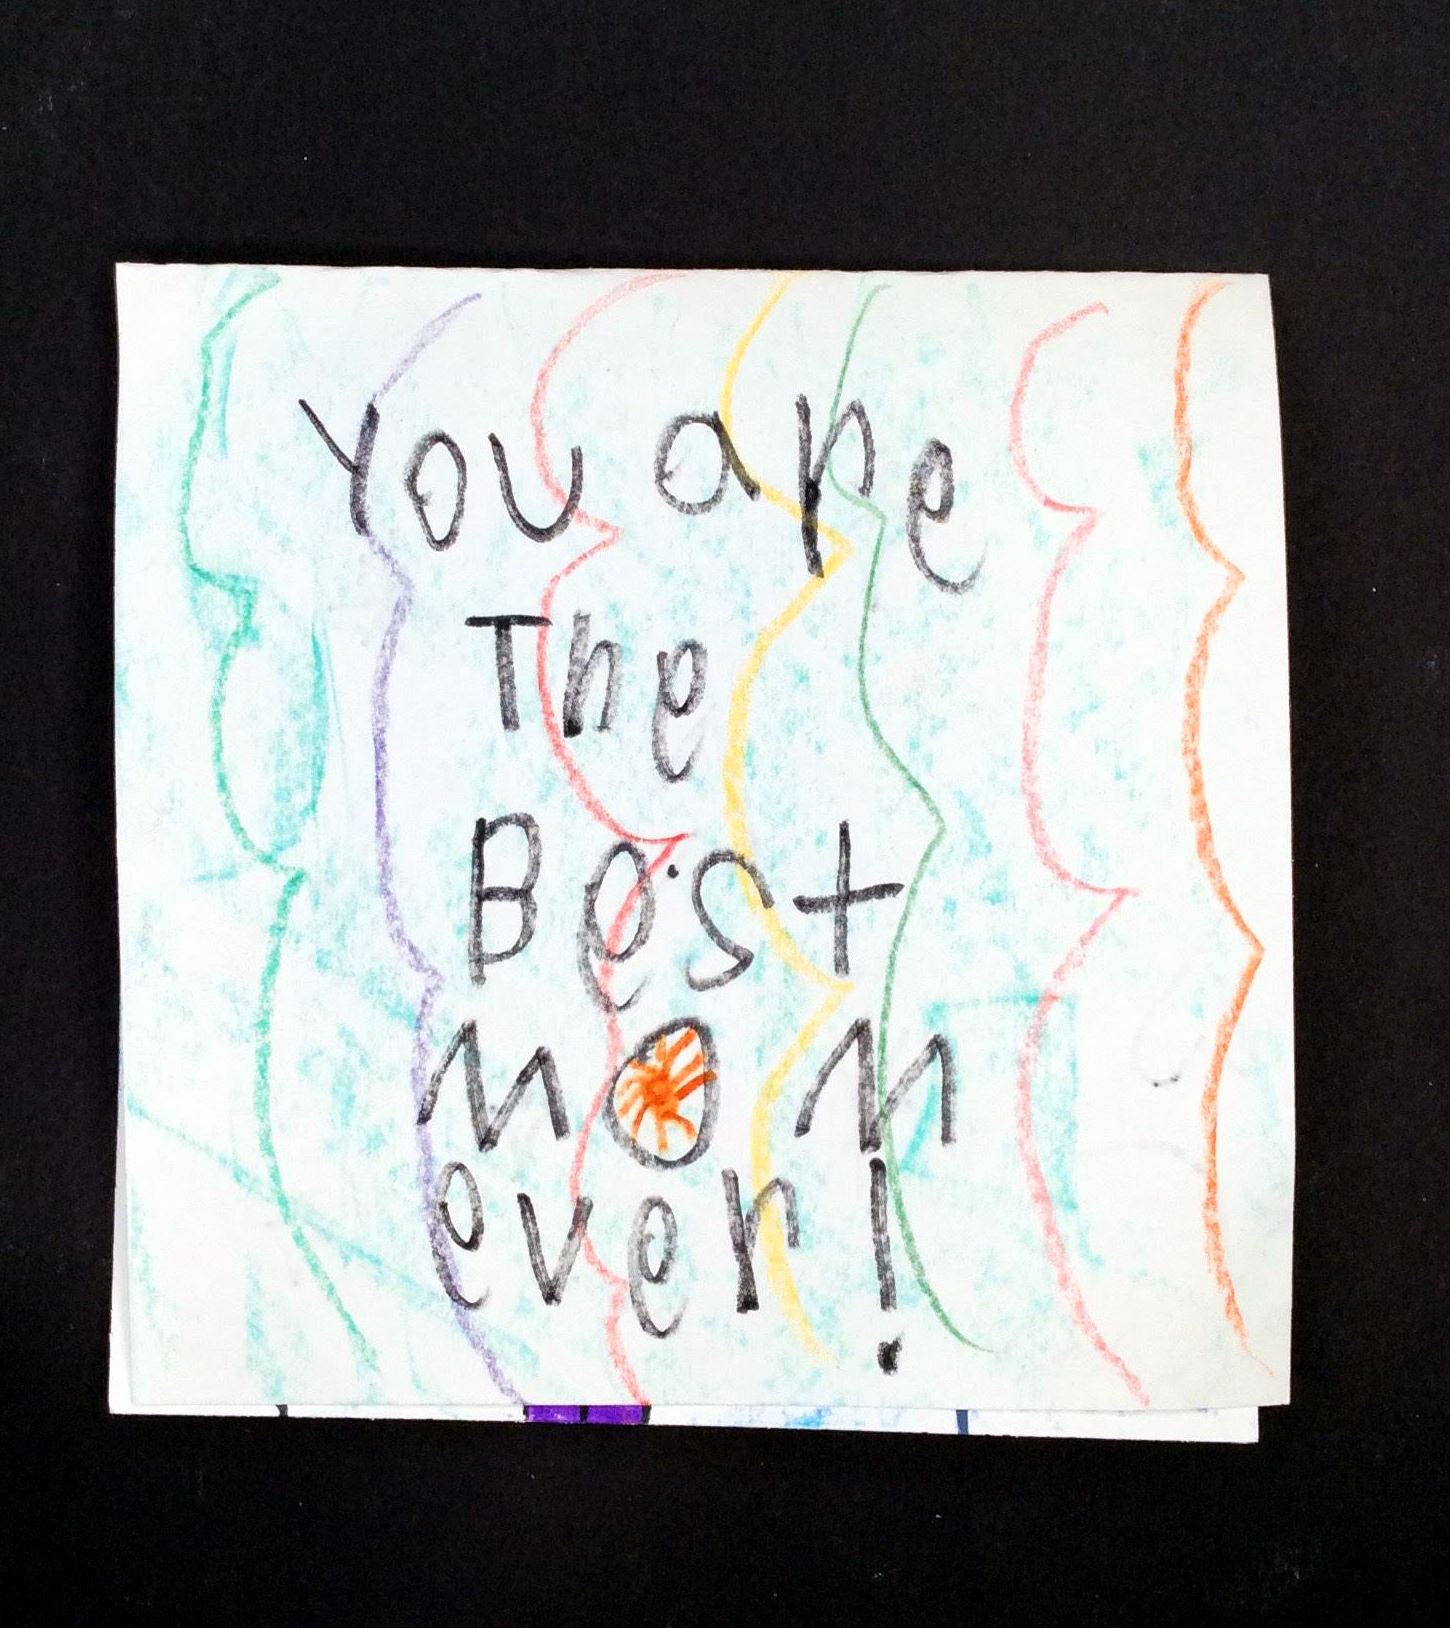 You are
The
Best
MOM
ever!